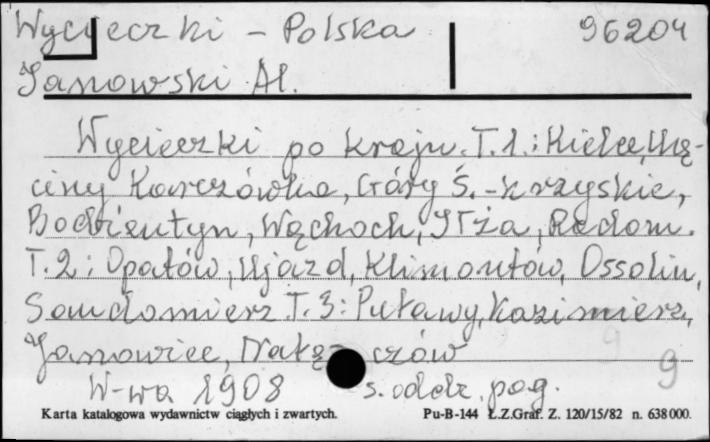 Wycieczki - Polska 96204
Janowski Al.
Wycieczki po kraju. T.1.: Kielce, Chę-
ciny Karczówka, Góry Ś.-krzyskie,
Bodzentyn, Wąchock, Iłża, Radom.
T.2: Opatów, Ujazd, Klimontów, Ossolin,
Sandomierz T.3: Puławy, Kazimierz,
Janowiec, Nałęczów
9 9
W-wa 1908 s. oddz. pag.
Karta katalogowa wydawnictw ciągłych i zwartych. Pu-B-144 Ł.Z.Graf. Z. 120/15/82 n. 638000.